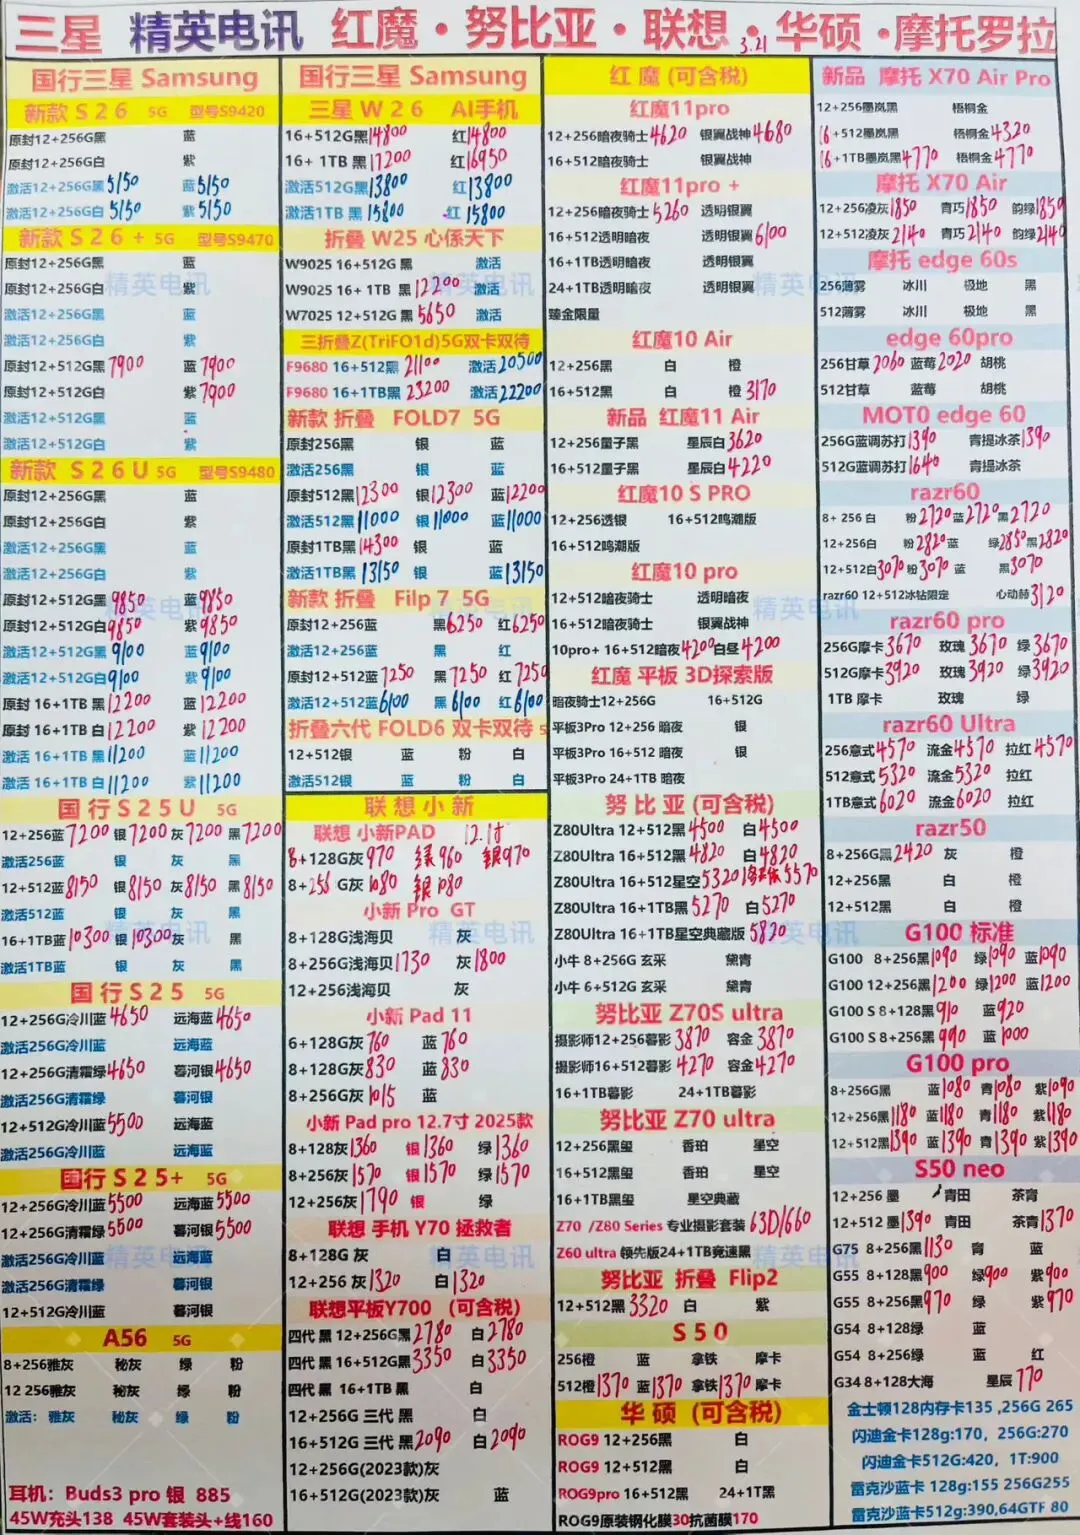 三星 精英电讯 红魔·努比亚·联想·华硕·摩托罗拉
3.21
国行三星 Samsung
新款 S 2 6 5G 型号S9420
原封12+256G黑 蓝
原封12+256G白 紫
激活12+256G黑5150 蓝5150
激活12+256G白5150 紫5150
新款 S 2 6 + 5G 型号S9470
原封12+256G黑 蓝
原封12+256G白 紫
激活12+256G黑 蓝
激活12+256G白 紫
原封12+512G黑7900 蓝7900
原封12+512G白 紫7900
激活12+512G黑 蓝
激活12+512G白 紫
新款 S 2 6 U 5G 型号S9480
原封12+256G黑 蓝
原封12+256G白 紫
激活12+256G黑 蓝
激活12+256G白 紫
原封12+512G黑9850 蓝9850
原封12+512G白9850 紫9850
激活12+512G黑9100 蓝9100
激活12+512G白9100 紫9100
原封 16+1TB 黑12200 蓝12200
原封 16+1TB 白12200 紫12200
激活 16+1TB 黑11200 蓝11200
激活 16+1TB 白11200 紫11200
国 行 S 2 5 U 5G
12+256蓝7200 银7200 灰7200 黑7200
激活256蓝 银 灰 黑
12+512蓝8150 银8150 灰8150 黑8150
激活512蓝 银 灰 黑
16+1TB蓝10300 银10300 灰 黑
激活1TB蓝 银 灰 黑
国 行 S 2 5 5G
12+256G冷川蓝4650 远海蓝4650
激活256G冷川蓝 远海蓝
12+256G清霜绿4650 暮河银4650
激活256G清霜绿 暮河银
12+512G冷川蓝5500 远海蓝
激活256G冷川蓝 远海蓝
国行 S 2 5 + 5G
12+256G冷川蓝5500 远海蓝5500
12+256G清霜绿5500 暮河银5500
激活256G冷川蓝 远海蓝
激活256G清霜绿 暮河银
12+512G冷川蓝 暮河银
A56 5G
8+256雅灰 秘灰 绿 粉
12 256雅灰 秘灰 绿 粉
激活：雅灰 秘灰 绿 粉
耳机：Buds3 pro 银 885
45W充头138 45W套装头+线160
国行三星 Samsung
三星 W 2 6 AI手机
16+512G黑14800 红14800
16+ 1TB 黑17200 红16950
激活512G黑13800 红13800
激活1TB 黑15800 红15800
折叠 W25 心係天下
W9025 16+512G 黑 激活
W9025 16+ 1TB 黑12200 激活
W7025 12+512G 黑5650 激活
三折叠Z(TriFO1d)5G双卡双待
F9680 16+512黑 21100 激活20500
F9680 16+1TB黑 23200 激活22200
新款 折叠 FOLD7 5G
原封256黑 银 蓝
激活256黑 银 蓝
原封512黑12300 银12300 蓝12200
激活512黑11000 银11000 蓝11000
原封1TB黑14300 银 蓝
激活1TB黑13150 银 蓝13150
新款 折叠 Filp 7 5G
原封12+256蓝 黑6250 红6250
激活12+256蓝 黑 红
原封12+512蓝7250 黑7250 红7250
激活12+512蓝6100 黑6100 红6100
折叠六代 FOLD6 双卡双待 5
12+512银 蓝 粉 白
激活512银 蓝 粉 白
联 想 小 新
联想 小新PAD 12.1寸
8+128G灰970 绿960 银970
8+256 G灰1080 银1080
小新 Pro GT
8+128G浅海贝 灰
8+256G浅海贝1730 灰1800
12+256浅海贝 灰
小新 Pad 11
6+128G灰760 蓝760
8+128G灰830 蓝830
8+256G灰1015 蓝
小新 Pad pro 12.7寸 2025款
8+128灰1360 银1360 绿1360
8+256灰1570 银1570 绿1570
12+256灰1790 银 绿
联想 手机 Y70 拯救者
8+128G 灰 白
12+256 灰1320 白1320
联想平板Y700 (可含税)
四代 黑 12+256G黑2780 白2780
四代 黑 16+512G黑3350 白3350
四代 黑 16+1TB 黑 白
12+256G 三代 黑 白
16+512G 三代 黑2090 白2090
12+256G(2023款)灰
16+512G(2023款)灰 蓝
红 魔 (可含税)
红魔11pro
12+256暗夜骑士4620 银翼战神4680
16+512暗夜骑士 银翼战神
红魔11pro +
12+256暗夜骑士5260 透明银翼
16+512透明暗夜 透明银翼6100
16+1TB透明暗夜 透明银翼
24+1TB透明暗夜 透明银翼
臻金限量
红魔10 Air
12+256黑 白 橙
16+512黑 白 橙3170
新品 红魔11 Air
12+256量子黑 星辰白3620
16+512量子黑 星辰白4220
红魔10 S PRO
12+256透银 16+512鸣潮版
16+512鸣潮版
红魔10 pro
12+512暗夜骑士 透明暗夜
16+512暗夜骑士 银翼战神
10pro+ 16+512暗夜4200白昼4200
红魔 平板 3D探索版
暗夜骑士12+256G 16+512G
平板3Pro 12+256 暗夜 银
平板3Pro 16+512 暗夜 银
平板3Pro 24+1TB 暗夜
努 比 亚 (可含税)
Z80Ultra 12+512黑4500 白4500
Z80Ultra 16+512黑4820 白4820
Z80Ultra 16+512星空5320 5570
Z80Ultra 16+1TB黑5270 白5270
Z80Ultra 16+1TB星空典藏版5820
小牛 8+256G 玄采 黛青
小牛 6+512G 玄采 黛青
努比亚 Z70S ultra
摄影师12+256暮影3870 容金3870
摄影师16+512暮影4270 容金4270
16+1TB暮影 24+1TB暮影
努比亚 Z70 ultra
12+256黑玺 香珀 星空
16+512黑玺 香珀 星空
16+1TB黑玺 星空典藏
Z70 /Z80 Series 专业摄影套装630/660
Z60 ultra 领先版24+1TB竞速黑
努比亚 折叠 Flip2
12+512黑3320 白 紫
S 5 0
256橙 蓝 拿铁 摩卡
512橙1370 蓝1370 拿铁1370 摩卡
华 硕 (可含税)
ROG9 12+256黑 白
ROG9 12+512黑 白
ROG9pro 16+512黑 24+1T黑
ROG9原装钢化膜30抗菌膜170
新品 摩托 X70 Air Pro
12+256墨岚黑 梧桐金
16+512墨岚黑 梧桐金4320
16+1TB墨岚黑4770 梧桐金4770
摩托 X70 Air
12+256凌灰1850 青巧1850 韵绿1850
12+512凌灰2140 青巧2140 韵绿2140
摩托 edge 60s
256薄雾 冰川 极地 黑
512薄雾 冰川 极地 黑
edge 60pro
256甘草2060 蓝莓2020 胡桃
512甘草 蓝莓 胡桃
MOT0 edge 60
256G蓝调苏打1390 青提冰茶1390
512G蓝调苏打1640 青提冰茶
razr60
8+ 256 白 粉2720蓝2720黑2720
12+256白 粉2820蓝 绿2850黑2820
12+512白3070粉3070 蓝 黑3070
razr60 12+512冰钻限定 心动赫3120
razr60 pro
256G摩卡3670 玫瑰3670 绿3670
512G摩卡3920 玫瑰3920 绿3920
1TB 摩卡 玫瑰 绿
razr60 Ultra
256意式4570 流金4570 拉红4570
512意式5320 流金5320 拉红
1TB意式6020 流金6020 拉红
razr50
8+256G黑2420 灰 橙
12+256黑 白 橙
12+512黑 白 橙
G100 标准
G100 8+256黑1090 绿1090 蓝1090
G100 12+256黑1200 绿1200 蓝1200
G100 S 8+128黑910 蓝920
G100 S 8+256黑990 蓝1000
G100 pro
8+256G黑 蓝1080 青1080 紫1090
12+256黑1180 蓝1180 青1180 紫1180
12+512黑1390 蓝1390 青1390 紫1390
S50 neo
12+256 墨 青田 茶青
12+512 墨1390 青田 茶青1370
G75 8+256黑1130 青 蓝
G55 8+128黑900 绿900 紫900
G55 8+256黑970 绿 紫970
G54 8+128绿 蓝
G54 8+256绿 蓝 红
G34 8+128大海 星辰770
金士顿128内存卡135 ,256G 265
闪迪金卡128g:170, 256G:270
闪迪金卡512G:420, 1T:900
雷克沙蓝卡 128g:155 256G255
雷克沙蓝卡512g:390,64GTF 80